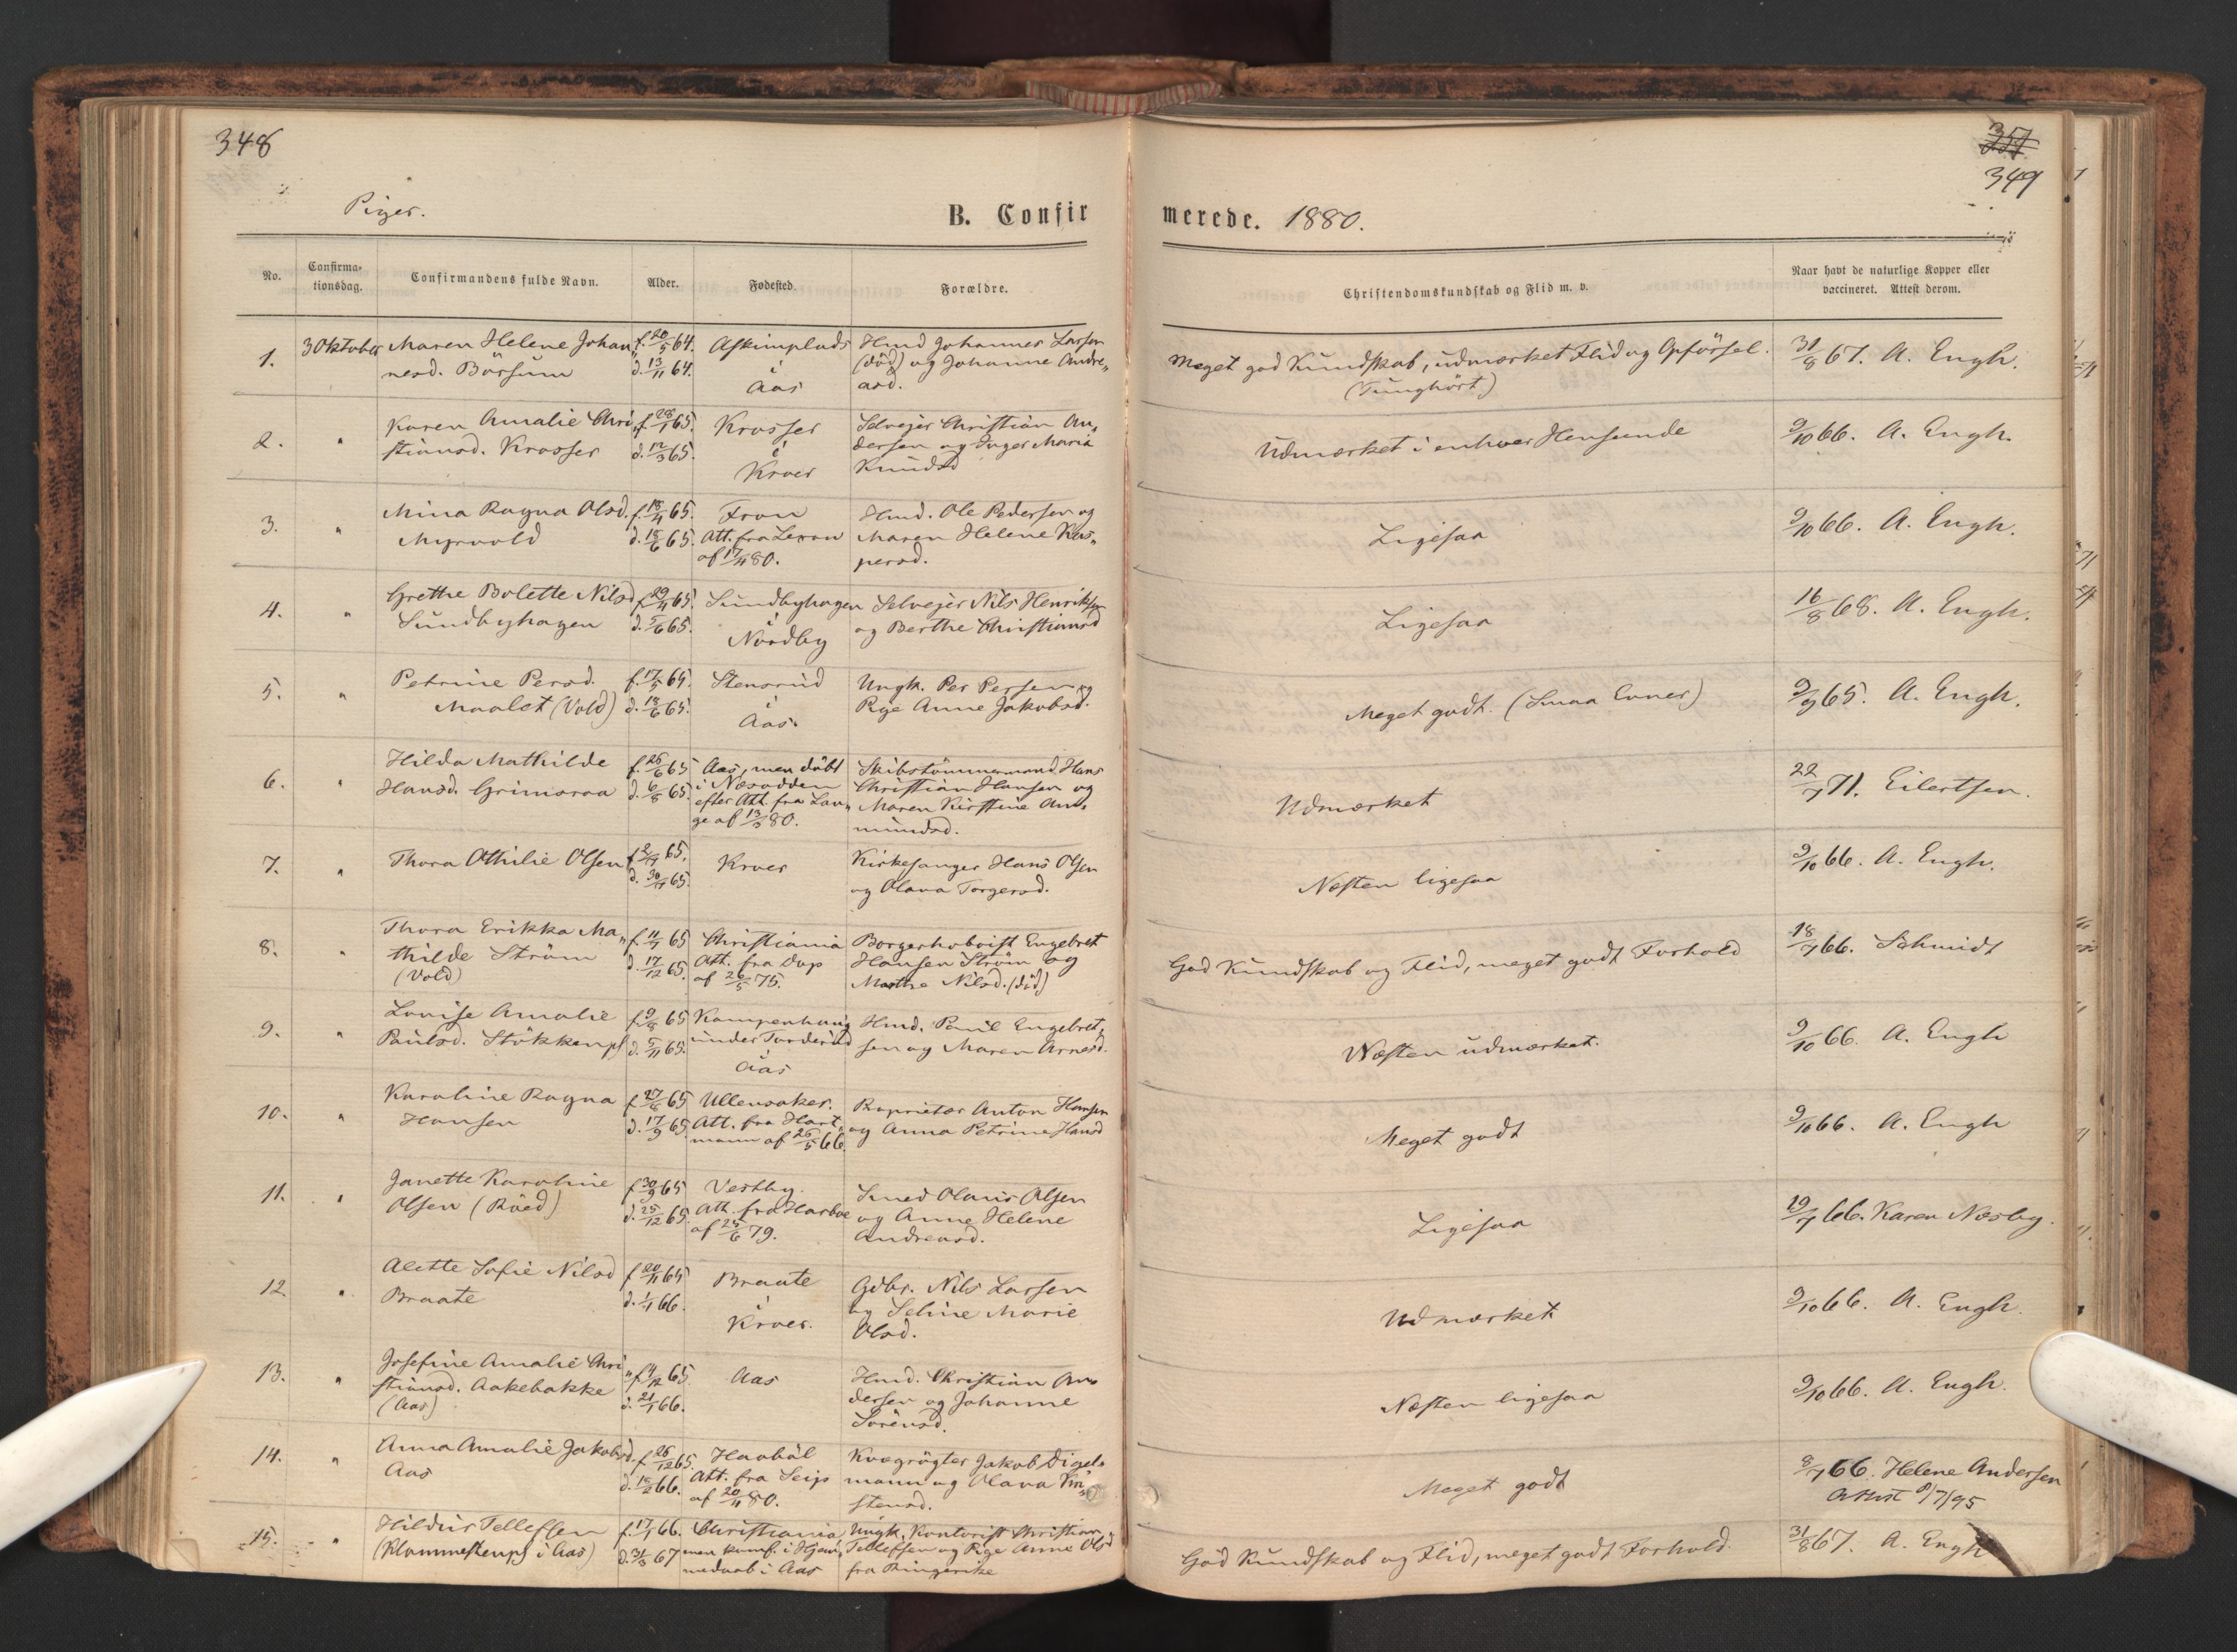 348
357
349
Piger.
B. Confirmerede. 1880.
No.
Confirmationsdag.
Confirmandens fulde Navn.
Alder.
Fødested.
Forældre.
Christendomskundskab og Flid m. v.
Naar havt de naturlige Kopper eller
vaccineret. Attest derom.
1.
3 Oktober
Maren Helene Johan„
nesd. Börsum
f. 20/5 64.
d. 13/11 64.
Askimplads
i
Aas
Hmd Johannes Larsen
(död) og Johanne Andre„
asd.
Meget god Kundskab, udmærket Flid og Opförsel.
(Tunghört)
31/8 67. A. Engh.
2.
"
Karen Amalie Chri„
stiansd. Krosser
f. 28/1 65.
d. 12/3 65.
Krosser
i
Kroer
Selvejer Christian An„
dersen og Inger Maria
Knudsd
Udmærket i enhver Henseende
9/10 66. A. Engh.
3.
"
Mina Ragna Olsd.
Myrvold
f. 18/4 65.
d. 18/6 65.
Fron
Att. fra Lexow
af 17/4 80.
Hmd. Ole Pedersen og
Maren Helene Kas„
persd.
Ligesaa
9/10 66. A. Engh.
4.
"
Grethe Bolette Nilsd
Sundbyhagen
f. 29/4 65.
d. 5/6 65.
Sundbyhagen
i
Nordby
Selvejer Nils Henriksen
og Berthe Christiansd
Ligesaa
16/8 68. A. Engh.
5.
"
Petrine Persd.
Maalet (Vold)
f. 17/5 65.
d. 18/6 65.
Stensrud
i
Aas.
Ungk. Per Persen og
Pige Anne Jakobsd.
Meget godt. (Smaa Evner)
9/9 65. A. Engh.
6.
"
Hilda Mathilde
Hansd. Grimsraa
f. 26/6 65
d. 6/8 65.
Aas, men döbt
i Næsodden
efter Att. fra Lan„
ge af 13/3 80.
Skibstömmermand Hans
Christian Hansen og
Maren Kirstine Am„
mundsd.
Udmærket
22/7 71. Eilertsen.
7.
"
Thora Othilie Olsen
65.
d. 30/ 65.
Kroer
Kirkesanger Hans Olsen
og Olava Torgersd.
Næsten ligesaa
9/10 66. A. Engh.
8.
"
Thora Erikka Ma„
thilde Ström
(Vold)
f. 11/7 65
d. 17/12 65.
Christiania
Att. fra
af 26/5 75.
Borgerhoboist Engebret
Hansen Ström og
Marthe Nilsd. (död)
God Kundskab og Flid, meget godt Forhold
18/7 66. Schmidt
9.
"
Lovise Amalie
Paulsd. Stökken
f. 9/8 65
d. 5/11 65.
Kampenhaug
under Torderud
i
Aas
Hmd. Paul Engebret„
sen og Maren Arnesd.
Næsten udmærket.
9/10 66. A. Engh
10.
"
Karoline Ragna
Hansen
f. 27/8 65
d. 17/9 65
Ullensaker.
Att. fra Hart„
mann af 26/5 66.
Proprietær Anton Hansen
og Anna Petrine Hansd
Meget godt
9/10 66. A. Engh
11.
"
Janette Karoline
Olsen (Röed)
f. 30/9 65
d. 25/12 65.
Vestby.
Att. fra Harboe
af 25/6 79.
Smed Olaus Olsen
og Anne Helene
Andreasd.
Ligesaa
19/7 66. Karen Næsby.
12.
"
Alette Sofie Nilsd
Braate
f. 20/11 65
d. 1/1 66.
Braate
i
Kroer.
Gdbr. Nils Larsen
og Seline Marie
Olsd.
Udmærket
9/10 66. A. Engh.
13.
"
Josefine Amalie Chri„
stiansd. Aakebakke
(Aas)
f. 4/12 65
d. 21/1 66.
Aas
Hmd. Christian An„
dersen og Johanne
Sörensd.
Næsten ligesaa
9/10 66. A. Engh.
14.
"
Anna Amalie Jakobsd.
Aas
f. 26/12 65.
d. 18/2 66.
Haaböl
Att. fra Seip
af 20/4 80.
Kvægrögter Jakob Digel„
mann og Olava Kri„
stensd.
Meget godt
8/7 66. Helene Andersen
Attest 8/7/95
15.
"
Hildur Tellefsen
i Aas)
f. 17/1 66.
d. 31/3 67
Christiania
men konf. i Hjem„
medaab i Aas
Ungk. Kontorist Christian
Tellefsen og Pige Anne Olsd
fra Ringerike
God Kundskab og Flid, meget godt Forhold.
31/8 67. A. Engh